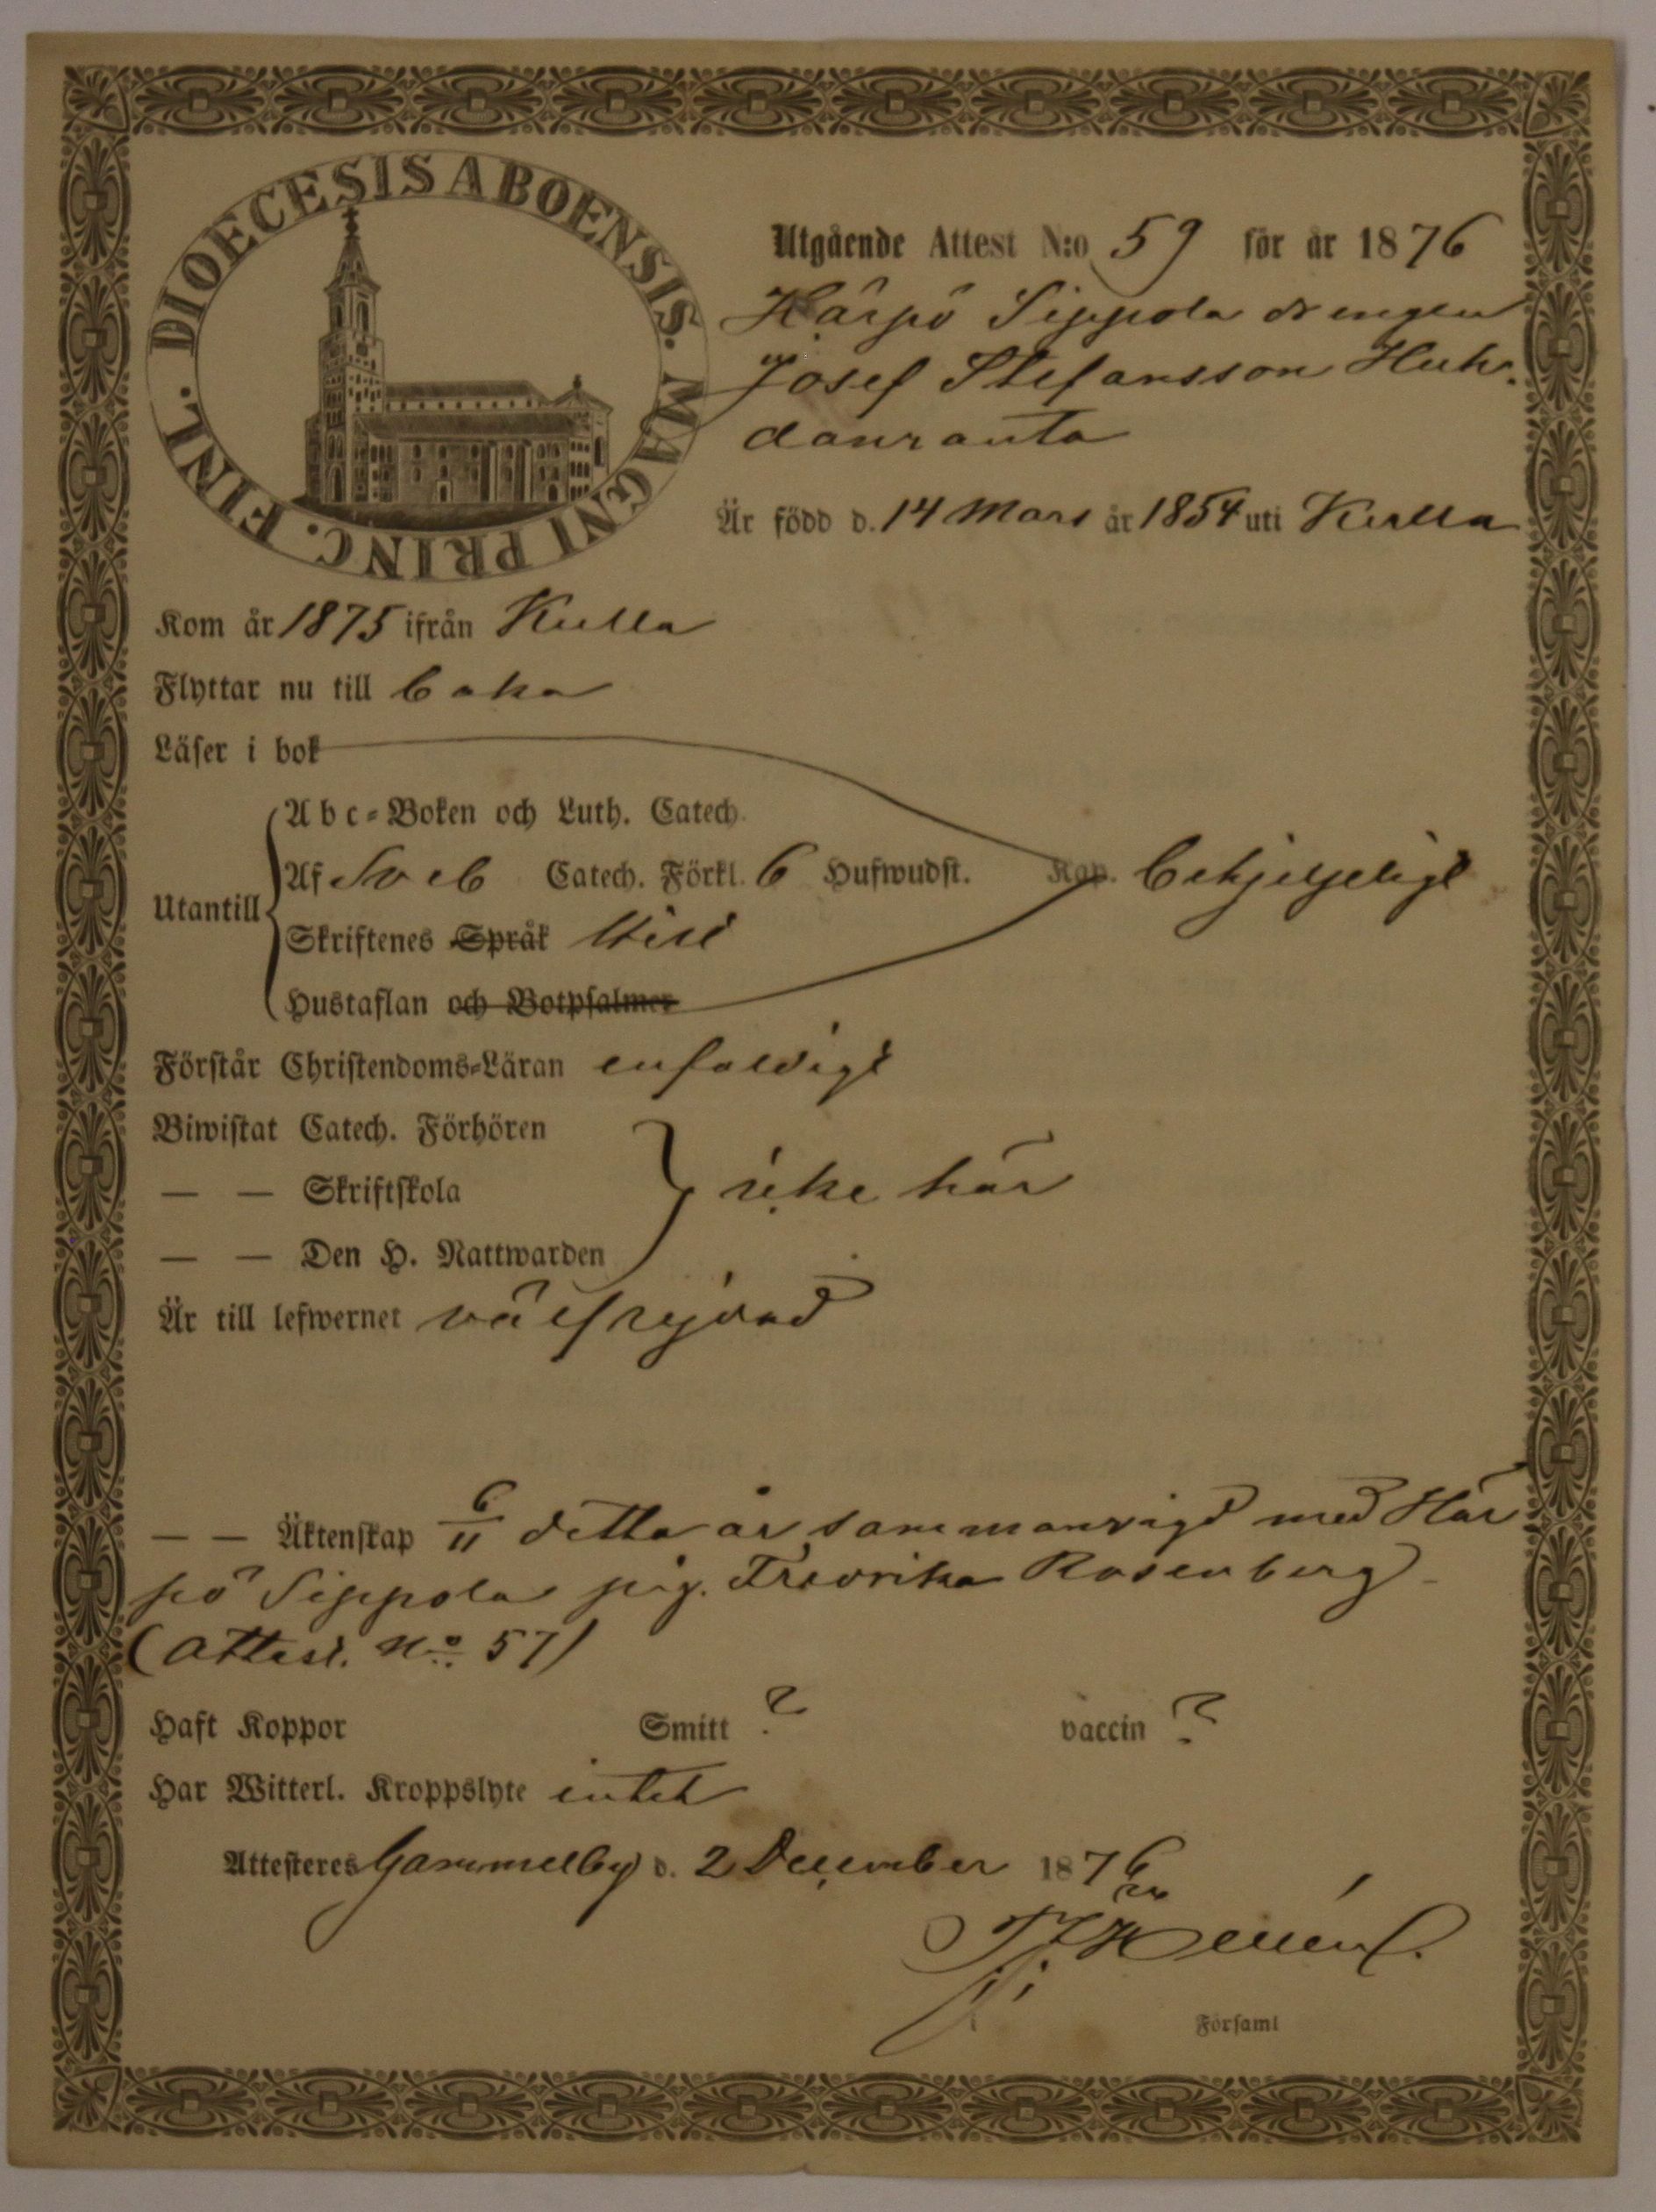 DIOECESIS ABOENSIS. MAGNI PRINC. FINL.
Utgående Attest N:o 59 för år 1876
Härpö Sippola drengen
Josef Stefansson Huh-
danranta
Är född d. 14 Mars år 1854 uti Kulla
Kom år 1875 ifrån Kulla
Flyttar nu till
Läser i bok
Abc-Boken och Luth. Catech.
Af Sveb Catech. Förkl. 6 Hufwudst. Kap. behjelpeligt
Utantill
Skriftenes Språk
Hustaflan och Botpsalmer
Förstår Christendoms-Läran enfaldigt
Biwistat Catech. Förhören
— — Skriftskola icke här
— — Den H. Nattwarden
Är till lefwernet välfrejdad
— — Äktenskap 6/11 detta år sammanvigd med Här
pö Sippola pig. Fredrika Rosenberg
(Attest. No. 57)
Haft Koppor Smitt ? vaccin ?
Har Witterl. Kroppslyte intet
Attesteres Gammelby d. 2 December 1876
Församl